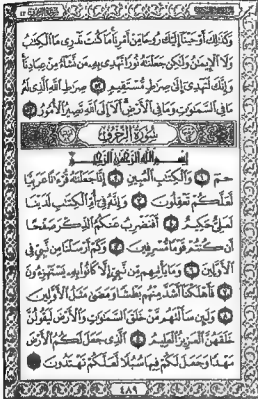 وَكَذَٰلِكَ أَوْحَيْنَا إِلَيْكَ رُوحًا مِّنْ أَمْرِنَا مَا كُنتَ تَدْرِى مَا ٱلْكِتَٰبُ
وَلَا ٱلْإِيمَٰنُ وَلَٰكِن جَعَلْنَٰهُ نُورًا نَّهْدِى بِهِۦ مَن نَّشَآءُ مِنْ عِبَادِنَا
وَإِنَّكَ لَتَهْدِىٓ إِلَىٰ صِرَٰطٍ مُّسْتَقِيمٍ ٥٢ صِرَٰطِ ٱللَّهِ ٱلَّذِى لَهُۥ
مَا فِى ٱلسَّمَٰوَٰتِ وَمَا فِى ٱلْأَرْضِ أَلَآ إِلَى ٱللَّهِ تَصِيرُ ٱلْأُمُورُ ٥٣
سُورَةُ ٱلزُّخْرُفِ
بِسْمِ ٱللَّهِ ٱلرَّحْمَٰنِ ٱلرَّحِيمِ
حمٓ ١ وَٱلْكِتَٰبِ ٱلْمُبِينِ ٢ إِنَّا جَعَلْنَٰهُ قُرْءَٰنًا عَرَبِيًّا
لَّعَلَّكُمْ تَعْقِلُونَ ٣ وَإِنَّهُۥ فِىٓ أُمِّ ٱلْكِتَٰبِ لَدَيْنَا
لَعَلِىٌّ حَكِيمٌ ٤ أَفَنَضْرِبُ عَنكُمُ ٱلذِّكْرَ صَفْحًا
أَن كُنتُمْ قَوْمًا مُّسْرِفِينَ ٥ وَكَمْ أَرْسَلْنَا مِن نَّبِىٍّ فِى
ٱلْأَوَّلِينَ ٦ وَمَا يَأْتِيهِم مِّن نَّبِىٍّ إِلَّا كَانُوا۟ بِهِۦ يَسْتَهْزِءُونَ
٧ فَأَهْلَكْنَآ أَشَدَّ مِنْهُم بَطْشًا وَمَضَىٰ مَثَلُ ٱلْأَوَّلِينَ
٨ وَلَئِن سَأَلْتَهُم مَّنْ خَلَقَ ٱلسَّمَٰوَٰتِ وَٱلْأَرْضَ لَيَقُولُنَّ
خَلَقَهُنَّ ٱلْعَزِيزُ ٱلْعَلِيمُ ٩ ٱلَّذِى جَعَلَ لَكُمُ ٱلْأَرْضَ
مَهْدًا وَجَعَلَ لَكُمْ فِيهَا سُبُلًا لَّعَلَّكُمْ تَهْتَدُونَ ١٠
٤٨٩